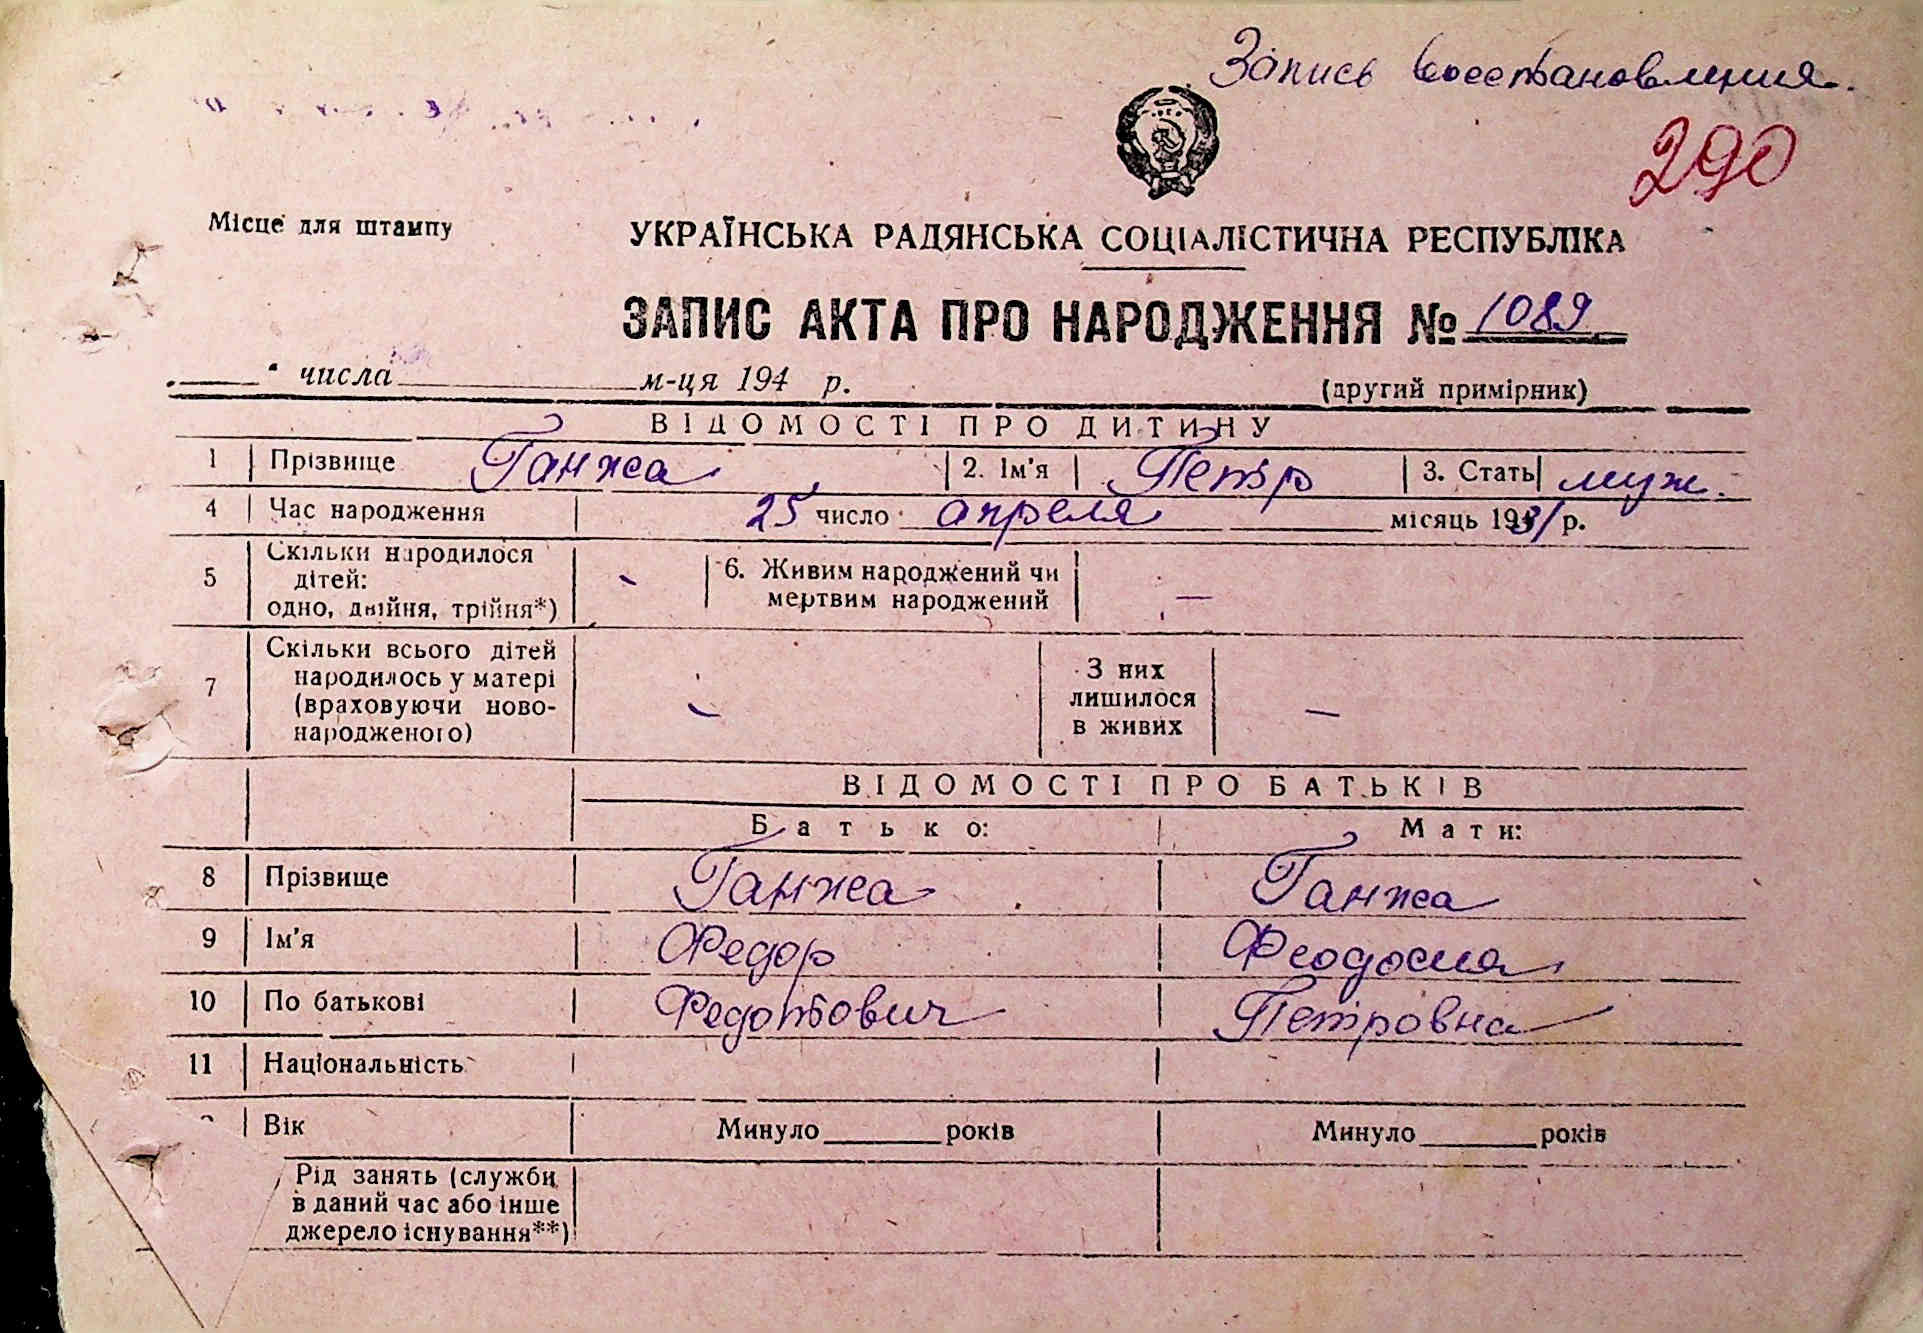 Запись восстановления.
290
Місце для штампу
УКРАЇНСЬКА РАДЯНСЬКА СОЦІАЛІСТИЧНА РЕСПУБЛІКА
ЗАПИС АКТА ПРО НАРОДЖЕННЯ № 1089
числа м-ця 194 р.
(другий примірник)
ВІДОМОСТІ ПРО ДИТИНУ
1 Прізвище Ганжа 2. Ім'я Петр 3. Стать муж.
4 Час народження 25 число апреля місяць 1931 р.
5 Скільки народилося дітей: одно, двійня, трійня*) - 6. Живим народжений чи мертвим народжений —
7 Скільки всього дітей народилось у матері (враховуючи ново-народженого) - З них лишилося в живих —
ВІДОМОСТІ ПРО БАТЬКІВ
Батько: Мати:
8 Прізвище Ганжа Ганжа
9 Ім'я Федор Феодосия
10 По батькові Федотович Петровна
11 Національність
Вік Минуло ______ років Минуло ______ років
Рід занять (служби
в даний час або інше
джерело існування**)